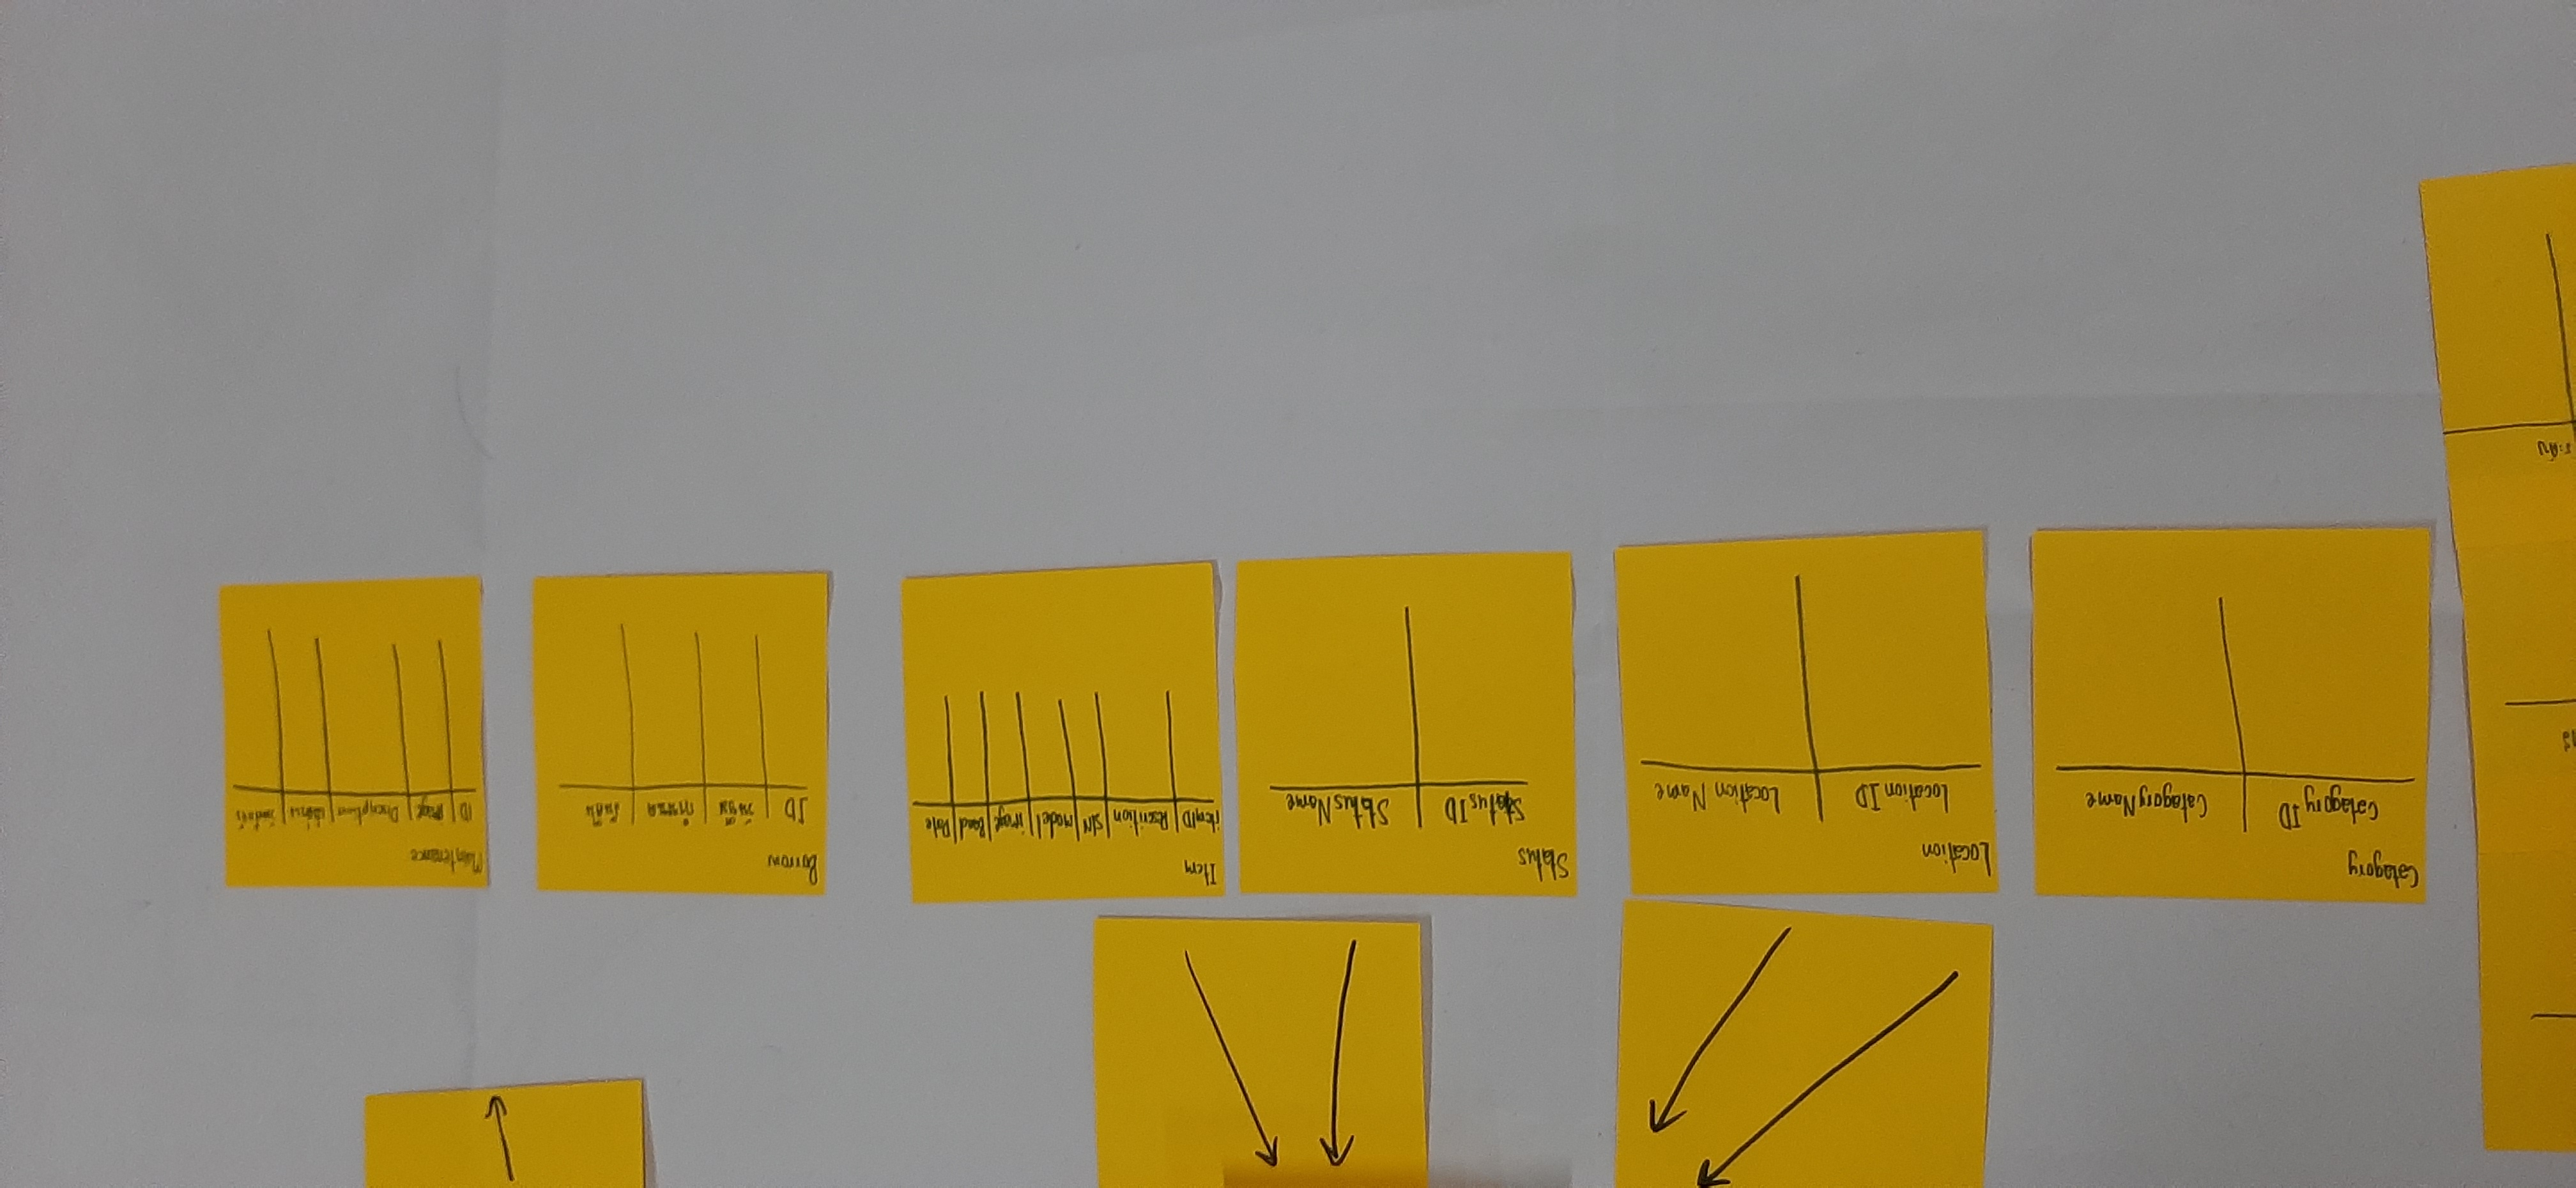 Catagory
Catagory ID CatagoryName
Location
Location ID Location Name
Status
Status ID Status Name
Item
itemID Descrition S/N model image Band Date
Borrow
ID วันยืม กำหนด วันคืน
Maintenance
ID image Discription วันที่แจ้ง
ระดับ